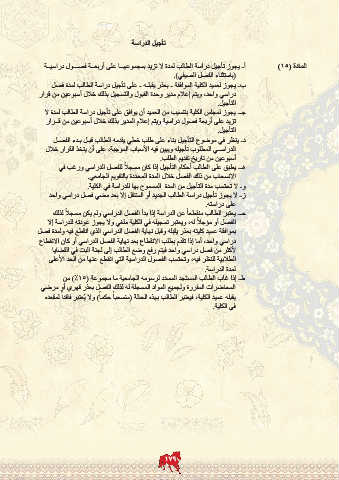 تأجيل الدراسة
المادة (١٥)
أ- يجوز تأجيل دراسة الطالب لمدة لا تزيد بمجموعها على أربعة فصول دراسية
(باستثناء الفصل الصيفي).
ب- يجوز لعميد الكلية الموافقة ـ بعذر يقبله ـ على تأجيل دراسة الطالب لمدة فصل
دراسي واحد، ويتم إعلام مدير وحدة القبول والتسجيل بذلك خلال أسبوعين من قرار
التأجيل.
جـ- يجوز لمجلس الكلية بتنسيب من العميد أن يوافق على تأجيل دراسة الطالب لمدة لا
تزيد على أربعة فصول دراسية ويتم إعلام المدير بذلك خلال أسبوعين من قرار
التأجيل.
د- ينظر في موضوع التأجيل بناء على طلب خطي يقدمه الطالب قبل بدء الفصل
الدراسي المطلوب تأجيله ويبين فيه الأسباب الموجبة، على أن يتخذ القرار خلال
أسبوعين من تاريخ تقديم الطلب.
هـ- يطبق على الطالب أحكام التأجيل إذا كان مسجلاً للفصل الدراسي ورغب في
الانسحاب من ذلك الفصل خلال المدة المحددة بالتقويم الجامعي.
و- لا تحتسب مدة التأجيل من المدة المسموح بها للدراسة في الكلية.
ز- لا يجوز تأجيل دراسة الطالب الجديد أو المنتقل إلا بعد مضي فصل دراسي واحد
على دراسته.
حـ- يعتبر الطالب منقطعاً عن الدراسة إذا بدأ الفصل الدراسي ولم يكن مسجلاً لذلك
الفصل أو مؤجلاً له، ويعتبر تسجيله في الكلية ملغى ولا يجوز عودته للدراسة إلا
بموافقة عميد كليته بعذر يقبله وقبل نهاية الفصل الدراسي الذي انقطع فيه ولمدة فصل
دراسي واحد، أما إذا تقدم بطلب الانقطاع بعد نهاية الفصل الدراسي أو كان الانقطاع
لأكثر من فصل دراسي واحد فيتم رفع وضع الطالب إلى لجنة البت في القضايا
الطلابية للنظر فيه، وتحتسب الفصول الدراسية التي انقطع عنها من الحد الأعلى
لمدة الدراسة.
ط- إذا غاب الطالب المستجد المسدد لرسومه الجامعية ما مجموعة (١٥٪) من
المحاضرات المقررة ولجميع المواد المسجلة له لذلك الفصل بعذر قهري أو مرضي
يقبله عميد الكلية، فيعتبر الطالب بهذه الحالة (منسحباً حكماً) ولا يُعتبر فاقداً لمقعده
في الكلية.
١٧٩